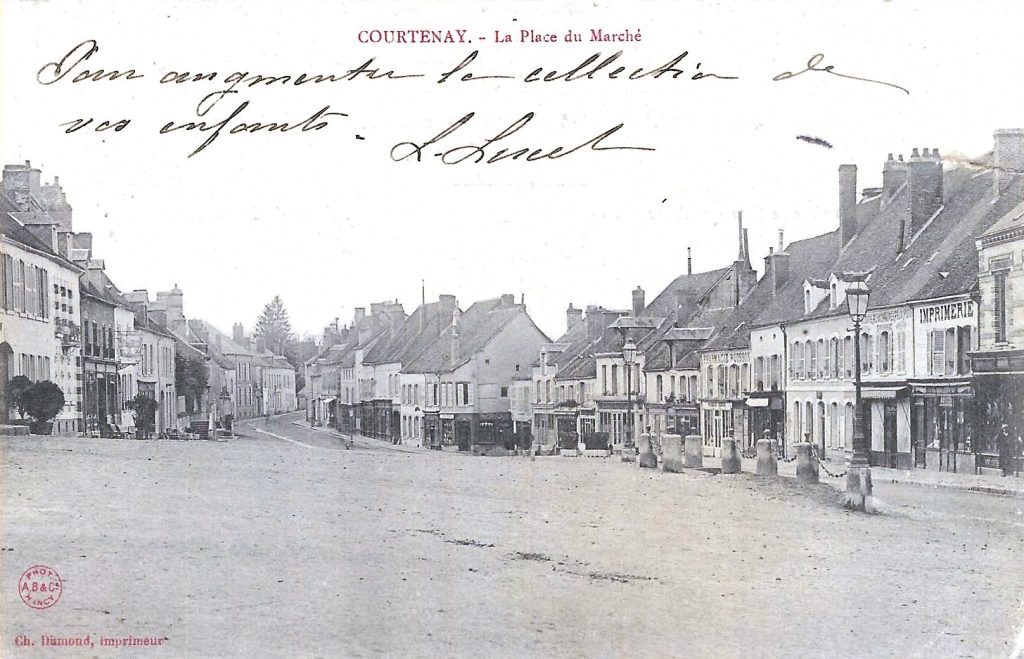 COURTENAY. - La Place du Marché
Pour augmenter la collection de
vos enfants -
IMPRIMERIE
PHOT.
A.B&Cie
NANCY
Ch. Damond, imprimeur